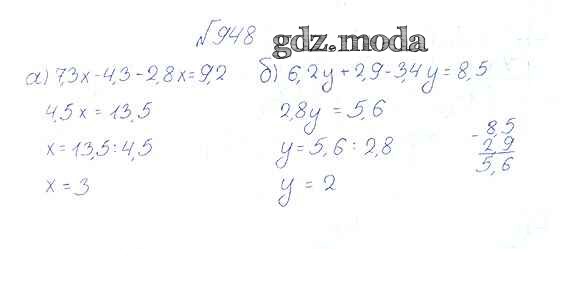 №948 gdz.moda
а) 7,3x - 4,3 - 2,8x = 9,2
4,5x = 13,5
x = 13,5 : 4,5
x = 3
б) 6,2y + 2,9 - 3,4y = 8,5
2,8y = 5,6
y = 5,6 : 2,8
y = 2
- 8,5
2,9
5,6